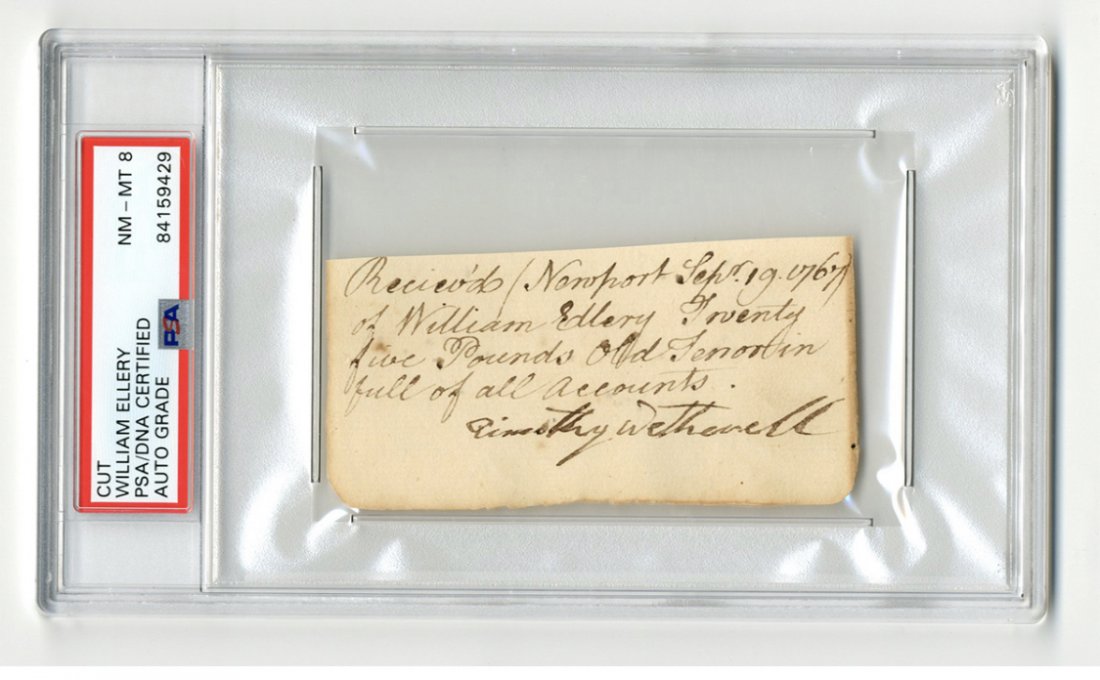 CUT
WILLIAM ELLERY
PSA/DNA CERTIFIED
AUTO GRADE
NM – MT 8
84159429
PSA
Reciev'd (Newport Sepr. 19. 1767)
of William Ellery Twenty
five Pounds Old Tenor in
full of all accounts.
Timothy Wetherell